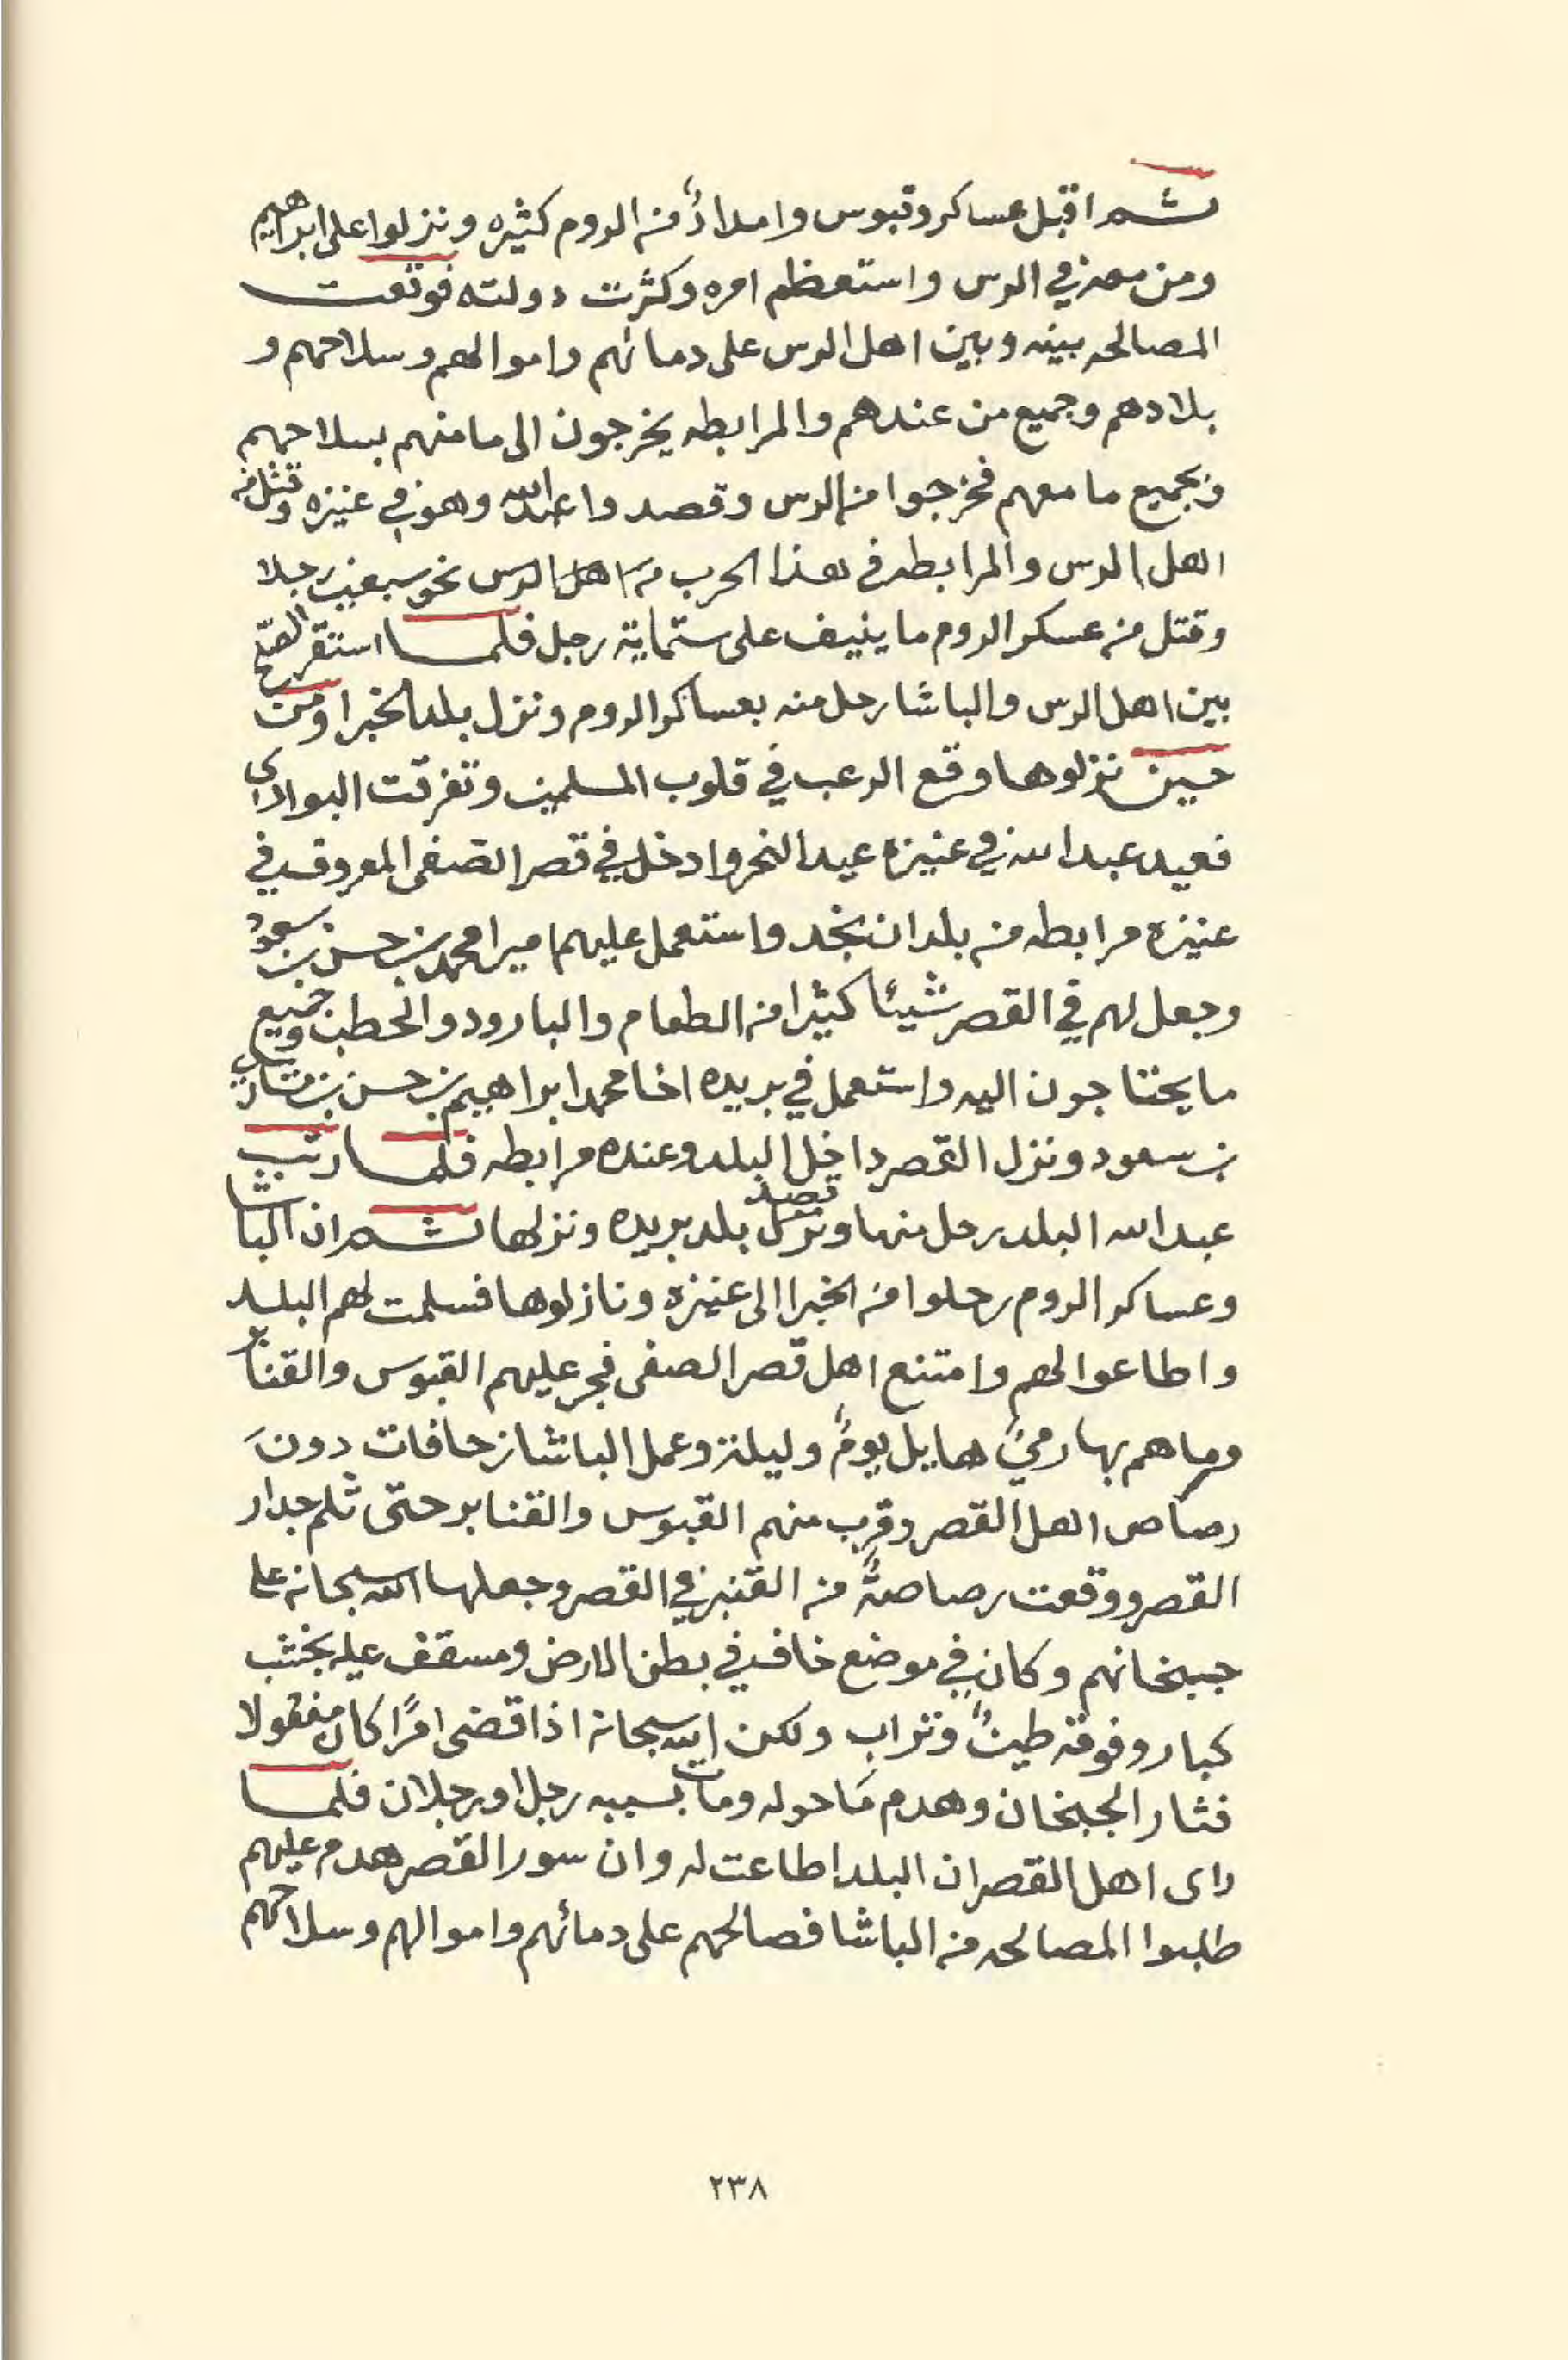 ثم اقبل عساكر وقبوس وامدادٌ من الروم كثيره ونزلوا على ابراهيم
ومن معه في الرس واستعظم امره وكثرت دولته فوقعت
المصالحه بينه وبين اهل الرس على دمائهم واموالهم وسلاحهم و
بلادهم وجميع من عندهم والمرابطه يخرجون الى مامنهم بسلاحهم
وبجميع ما معهم فخرجوا من الرس وقصدوا عبدالله وهو في عنيزه وقتل من
اهل الرس والمرابطه في هذا الحرب من اهل الرس نحو سبعين رجلا
وقتل من عسكر الروم ما ينيف على ستماية رجل فلما استقر الصلح
بين اهل الرس والباشا رحل منه بعساكر الروم ونزل بلد الخبرا ومن
حين نزلوها وقع الرعب في قلوب المسلمين وتفرقت البوادي
فعيد عبدالله في عنيزه عيد النحر وادخل في قصر الصفى المعروف في
عنيزة مرابطه من بلدان نجد واستعمل عليهم اميرا محمد بن حسن بن سعود
وجعل لهم في القصر شيئا كثيرا من الطعام والبارود والحطب وجميع
ما يحتاجون اليه واستعمل في بريده اخا محمد ابراهيم بن حسن بن مشاري
بن سعود ونزل القصر داخل البلد وعنده مرابطه فلما رتب
عبدالله البلد رحل منها ونزل قصد بلد بريده ونزلها ثم ان الباشا
وعساكر الروم رحلوا من الخبرا الى عنيزة ونازلوها فسلمت لهم البلد
واطاعوا لهم وامتنع اهل قصر الصفى فجر عليهم القبوس والقنابر
ورماهم بها رميً هايل يومً وليلة وعمل الباشا زحافات دونَ
رصاص اهل القصر وقرب منهم القبوس والقنابر حتى ثلم جدار
القصر ووقعت رصاصةٌ من القنبر في القصر وجعلها الله سبحانه على
جبخانهم وكان في موضع خاف في بطن الارض ومسقف عليه بخشب
كبار وفوقه طينً وتراب ولكن الله سبحانه اذا قضى امرًا كان مفعولا
فثار الجبخان وهدم مَا حوله ومات بسببه رجل او رجلان فلما
راى اهل القصر ان البلد اطاعت له وان سور القصر هدم عليهم
طلبوا المصالحه من الباشا فصالحهم على دمائهم واموالهم وسلاحهم
٢٣٨